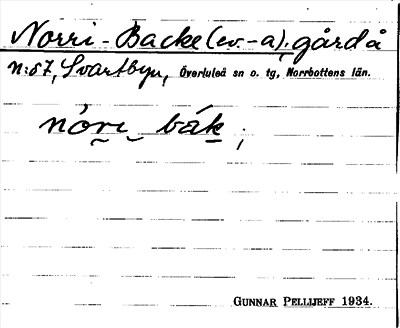 Norri-Backe (ev. -a), gård å
N:o 57, Svartbyn, Överluleå sn o. tg, Norrbottens län.
nóri bák ;
GUNNAR PELLIJEFF 1934.